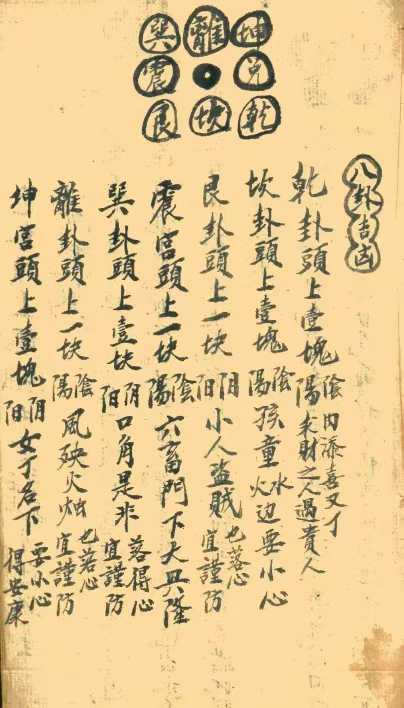 巽離坤
震兌
艮坎乾
八卦吉凶
乾卦頭上壹塊陰內添喜又丁
陽求財之人遇貴人
坎卦頭上壹塊陰陽孩童水火边要小心
艮卦頭上一块阴阳小人盜賊也落心宜謹防
震宮頭上一块陰陽六畜門下大興隆
巽卦頭上壹块阴阳口角是非落得心宜謹防
離卦頭上一块陰陽風殃火烛也落心宜謹防
坤宮頭上壹塊阴阳女丁名下要小心得安康